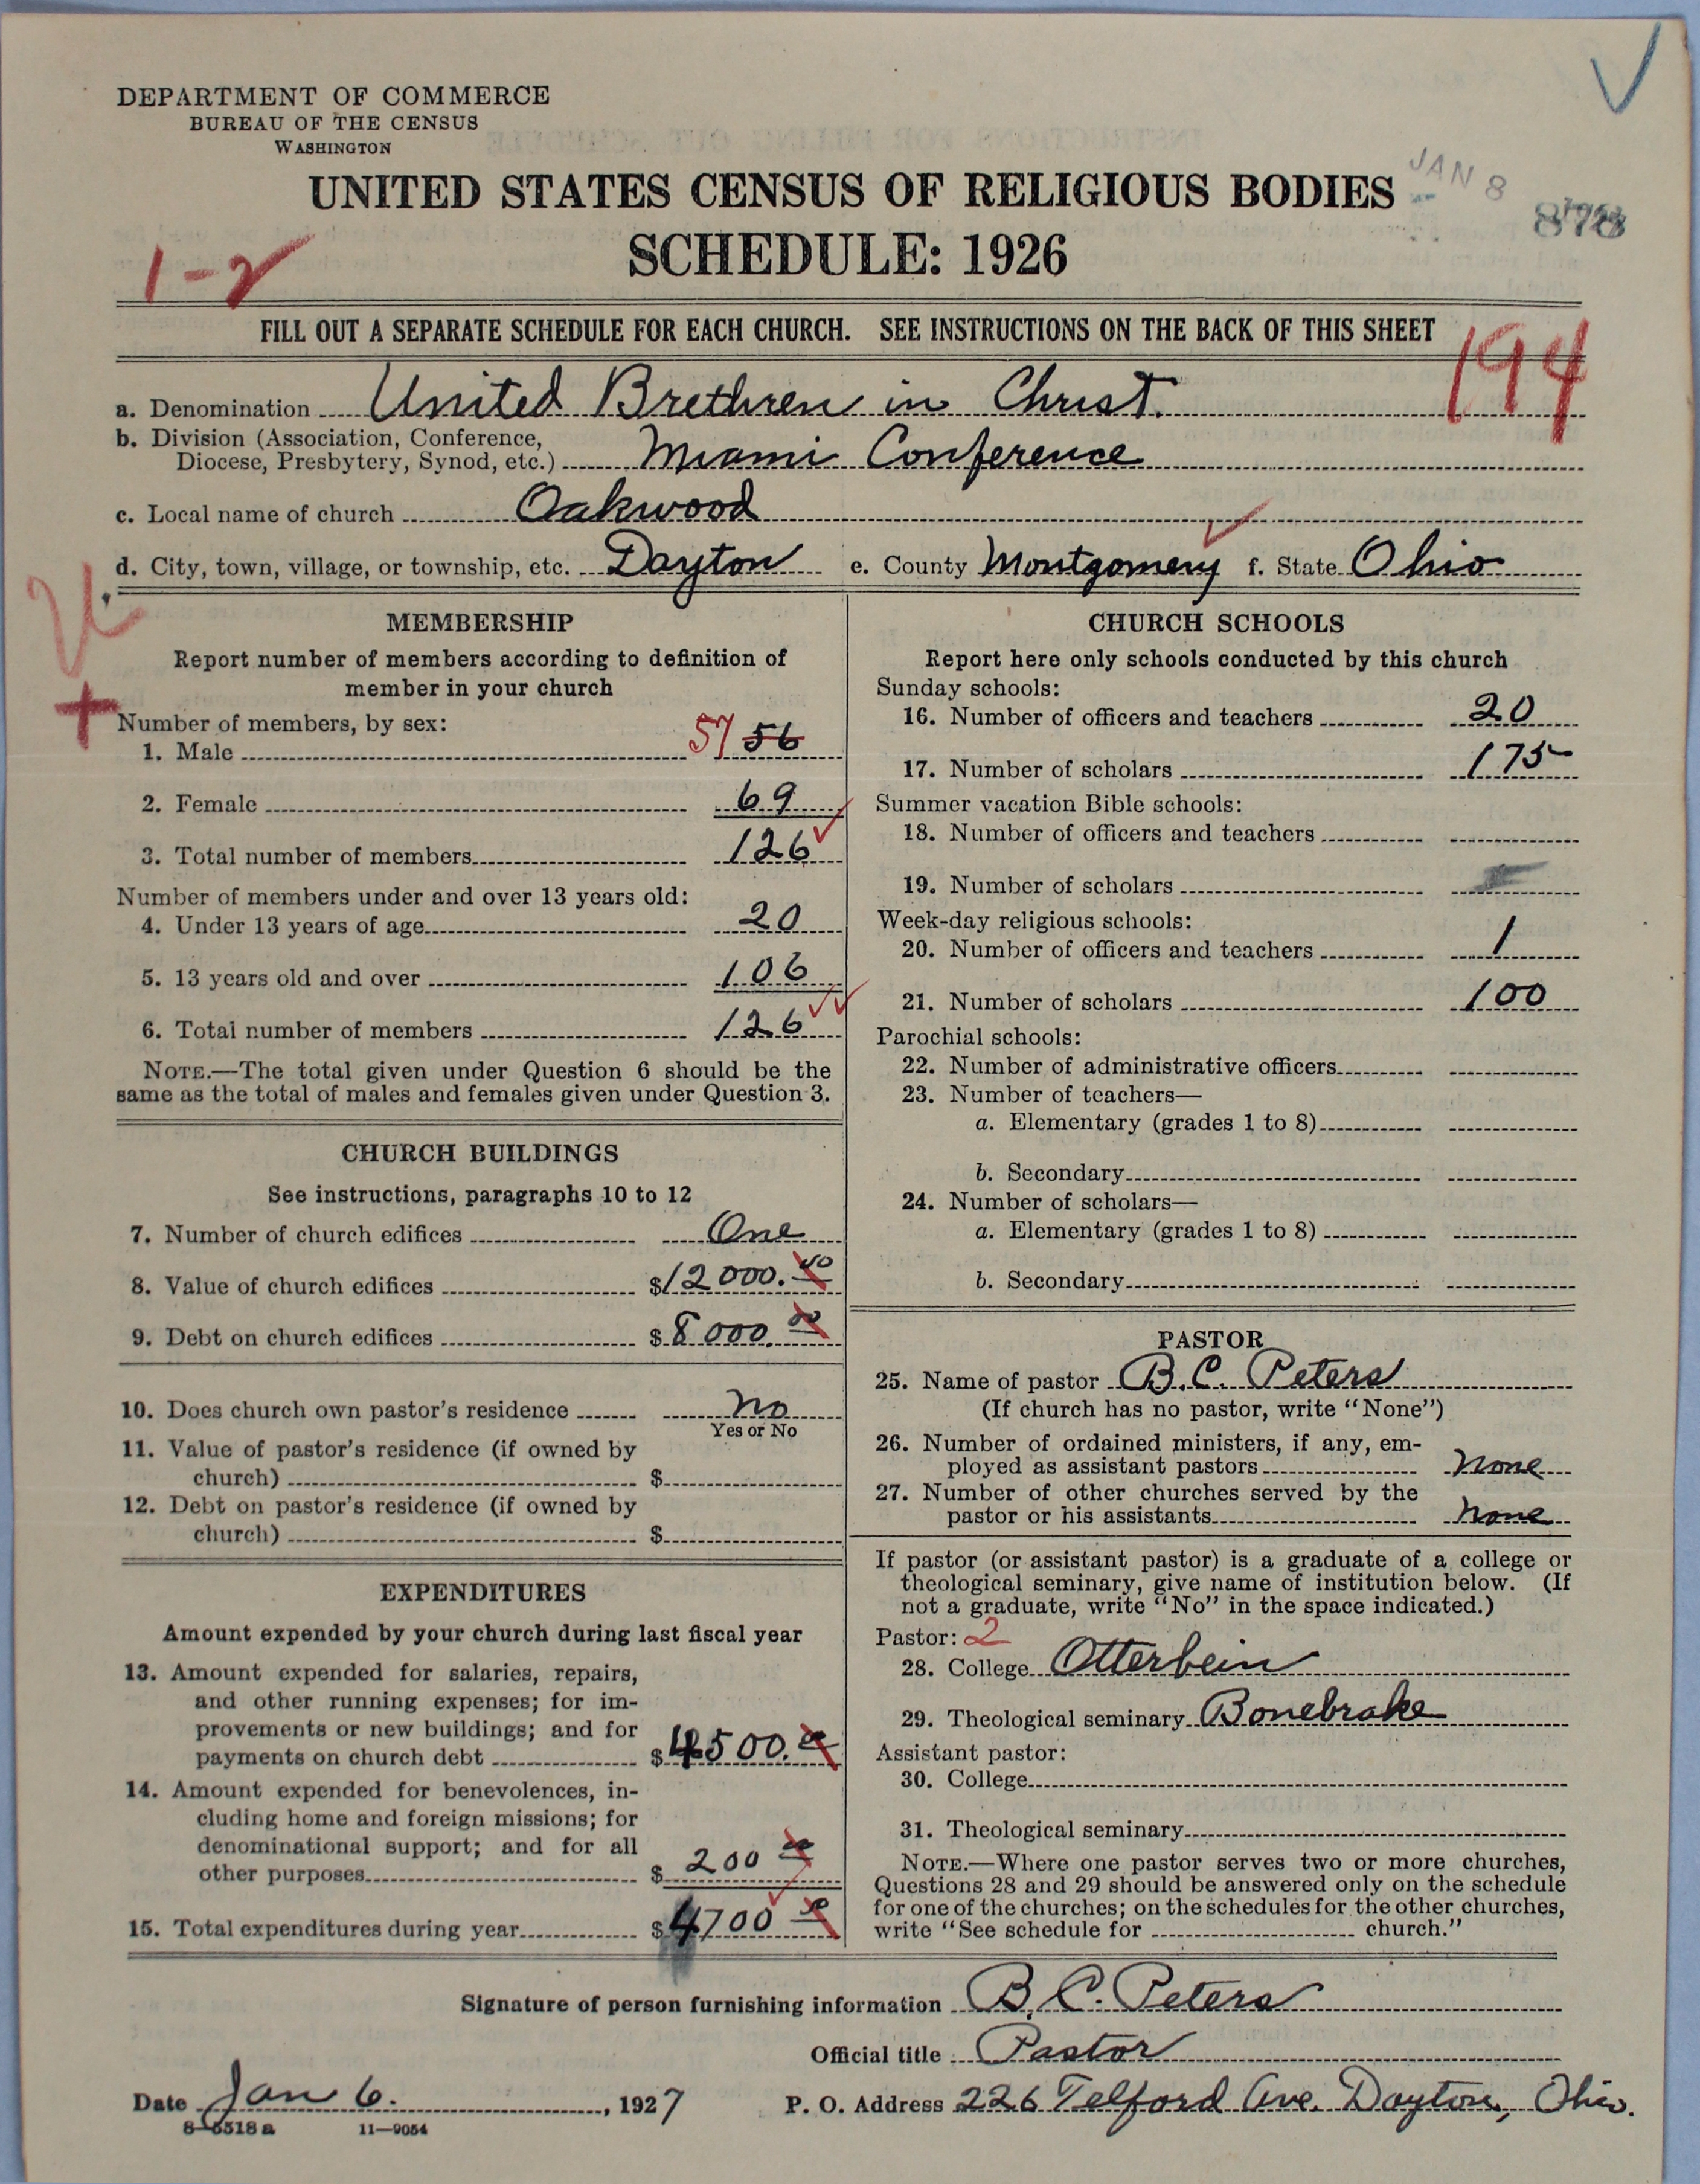 DEPARTMENT OF COMMERCE
BUREAU OF THE CENSUS
WASHINGTON
UNITED STATES CENSUS OF RELIGIOUS BODIES
JAN 8
SCHEDULE: 1926
1-2
FILL OUT A SEPARATE SCHEDULE FOR EACH CHURCH. SEE INSTRUCTIONS ON THE BACK OF THIS SHEET
194
a. Denomination United Brethren in Christ.
b. Division (Association, Conference,
Diocese, Presbytery, Synod, etc.) Miami Conference
c. Local name of church Oakwood
d. City, town, village, or township, etc. Dayton e. County Montgomery f. State Ohio
MEMBERSHIP
Report number of members according to definition of
member in your church
Number of members, by sex:
1. Male 57 56
2. Female 69
3. Total number of members 126
Number of members under and over 13 years old:
4. Under 13 years of age 20
5. 13 years old and over 106
6. Total number of members 126
NOTE.—The total given under Question 6 should be the
same as the total of males and females given under Question 3.
CHURCH BUILDINGS
See instructions, paragraphs 10 to 12
7. Number of church edifices One
8. Value of church edifices $12000.00
9. Debt on church edifices $8000.00
10. Does church own pastor's residence No
Yes or No
11. Value of pastor's residence (if owned by
church) $
12. Debt on pastor's residence (if owned by
church) $
EXPENDITURES
Amount expended by your church during last fiscal year
13. Amount expended for salaries, repairs,
and other running expenses; for im-
provements or new buildings; and for
payments on church debt $4500.00
14. Amount expended for benevolences, in-
cluding home and foreign missions; for
denominational support; and for all
other purposes $200 00
15. Total expenditures during year $4700 00
CHURCH SCHOOLS
Report here only schools conducted by this church
Sunday schools:
16. Number of officers and teachers 20
17. Number of scholars 175
Summer vacation Bible schools:
18. Number of officers and teachers
19. Number of scholars
Week-day religious schools:
20. Number of officers and teachers 1
21. Number of scholars 100
Parochial schools:
22. Number of administrative officers
23. Number of teachers—
a. Elementary (grades 1 to 8)
b. Secondary
24. Number of scholars—
a. Elementary (grades 1 to 8)
b. Secondary
PASTOR
25. Name of pastor B.C. Peters
(If church has no pastor, write "None")
26. Number of ordained ministers, if any, em-
ployed as assistant pastors None
27. Number of other churches served by the
pastor or his assistants None
If pastor (or assistant pastor) is a graduate of a college or
theological seminary, give name of institution below. (If
not a graduate, write "No" in the space indicated.)
Pastor: 2
28. College Otterbein
29. Theological seminary Bonebrake
Assistant pastor:
30. College
31. Theological seminary
NOTE.—Where one pastor serves two or more churches,
Questions 28 and 29 should be answered only on the schedule
for one of the churches; on the schedules for the other churches,
write "See schedule for church."
Signature of person furnishing information B.C. Peters
Official title Pastor
Date Jan 6. , 1927 P. O. Address 226 Telford Ave. Dayton, Ohio.
8-5518a 11-9054